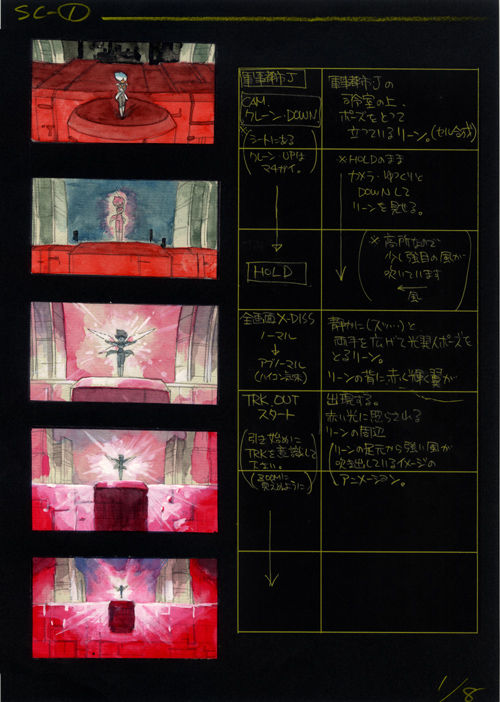 SC-①
軍事都市J
CAM.
クレーン・DOWN
シートにある
クレーン・UPは
マチガイ。
HOLD
全画面X-DISS
ノーマル
↓
アブノーマル
(ハイコン気味)
TRK OUT
スタート
(引き始めに
TRKを意識して
下さい。)
(ZOOMに
見えぬように)
軍事都市Jの
司令室の上、
ポーズをとって
立っているリーン。(セル合成)
※HOLDのまま
カメラ・ゆっくりと
DOWNして
リーンを見せる。
(※高所なので
少し強目の風が
吹いています
←
風)
静かに(スッ…)と
両手を広げて光翼人ポーズを
とるリーン。
リーンの背に赤く輝く翼が
出現する。
赤い光に照らされる
リーンの周辺
(リーンの足元から強い風が
吹き出しているイメージの
アニメーション。
1/8